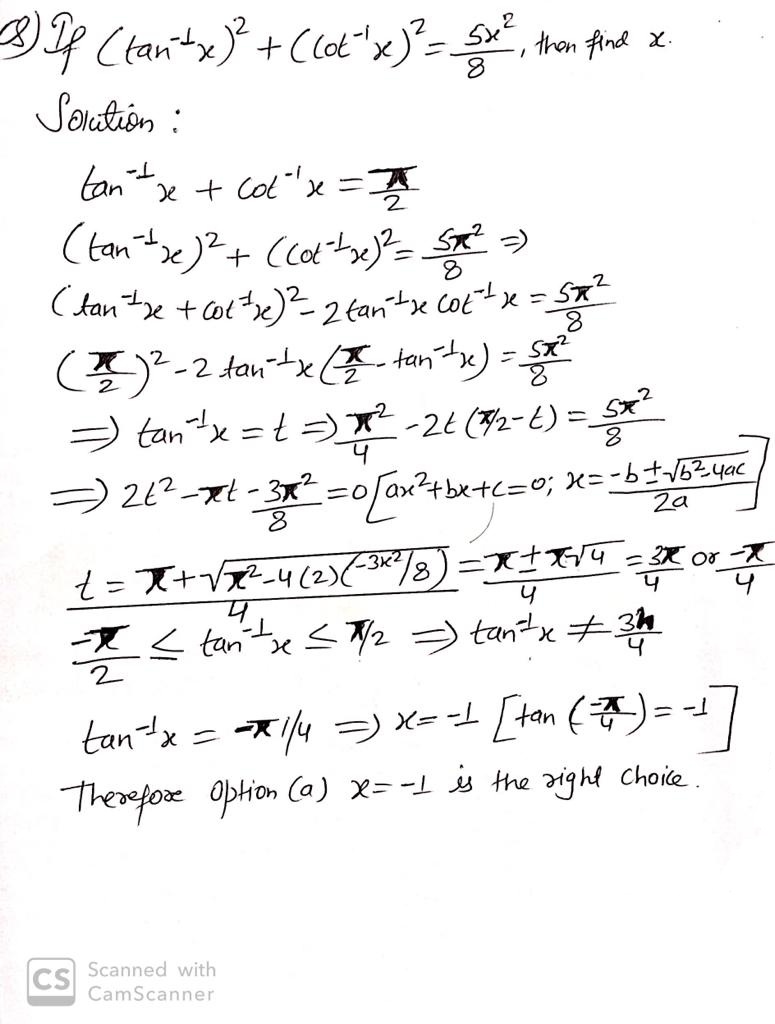 Q8) If (tan⁻¹x)² + (cot⁻¹x)² = 5x²/8, then find x.
Solution :
tan⁻¹x + cot⁻¹x = π/2
(tan⁻¹x)² + (cot⁻¹x)² = 5π²/8 ⇒
(tan⁻¹x + cot⁻¹x)² - 2tan⁻¹x cot⁻¹x = 5π²/8
(π/2)² - 2 tan⁻¹x (π/2 - tan⁻¹x) = 5π²/8
⇒ tan⁻¹x = t ⇒ π²/4 - 2t (π/2 - t) = 5π²/8
⇒ 2t² - πt - 3π²/8 = 0 [ax²+bx+c=0; x = -b ± √b²-4ac / 2a]
t = π + √π²-4(2)(-3x²/8) / 4 = π ± π√4 / 4 = 3π/4 or -π/4
-π/2 ≤ tan⁻¹x ≤ π/2 ⇒ tan⁻¹x ≠ 3π/4
tan⁻¹x = -π1/4 ⇒ x = -1 [tan (-π/4) = -1]
Therefore option (a) x = -1 is the right choice.
CS Scanned with
CamScanner